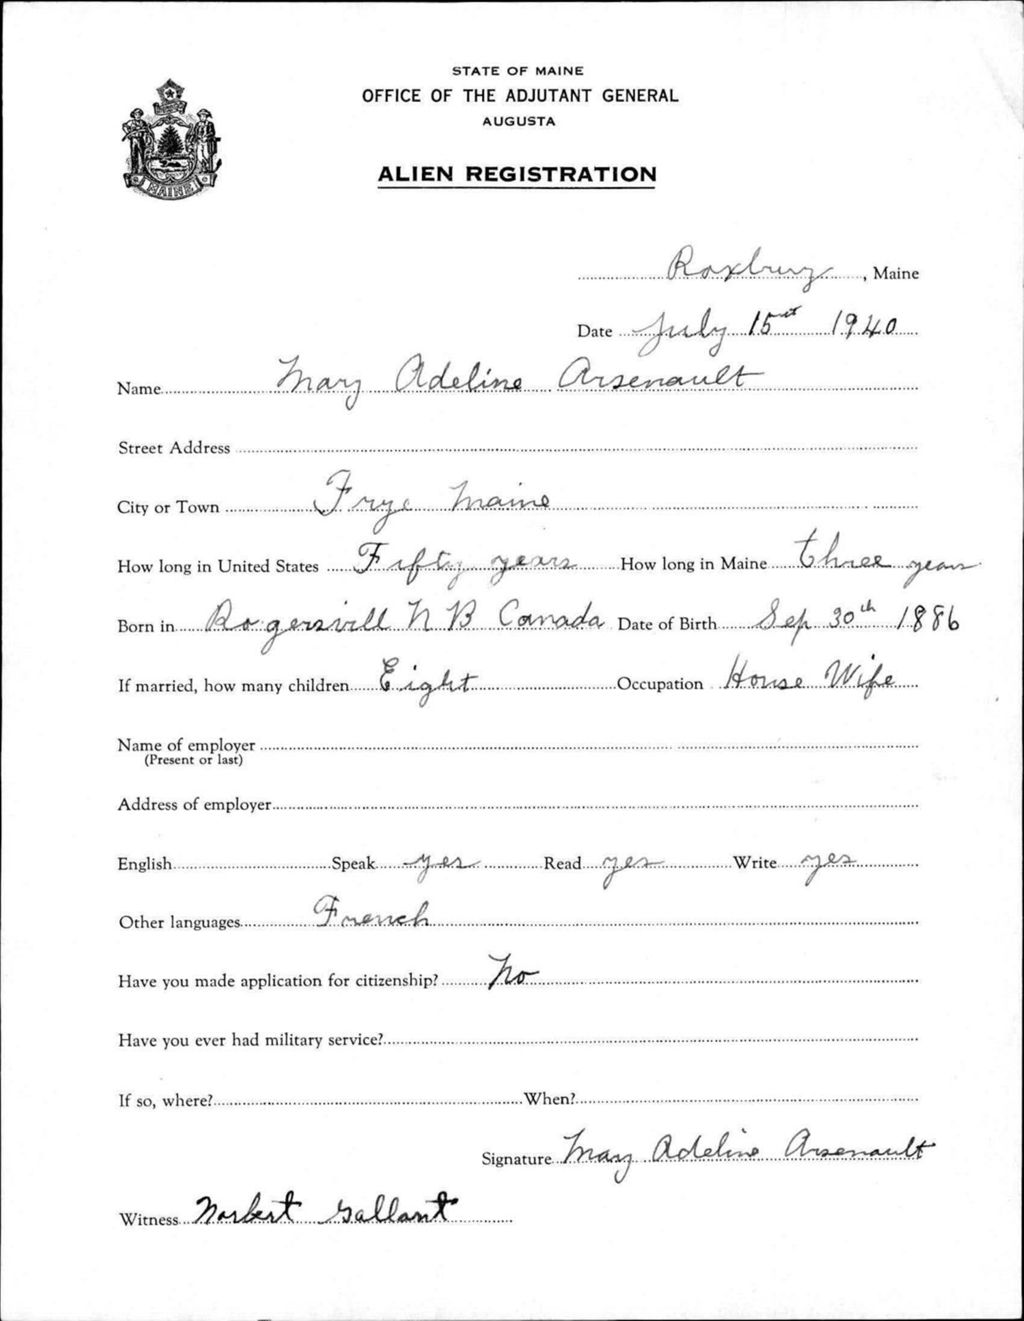 STATE OF MAINE
OFFICE OF THE ADJUTANT GENERAL
AUGUSTA
ALIEN REGISTRATION
MAINE
Roxbury, Maine
Date July 15st 1940
Name Mary Adeline Arsenault
Street Address
City or Town Frye Maine
How long in United States Fifty years How long in Maine three years
Born in Rogersvill N B Canada Date of Birth Sep 30th 1886
If married, how many children Eight Occupation House Wife
Name of employer
(Present or last)
Address of employer
English Speak yes Read yes Write yes
Other languages French
Have you made application for citizenship? No
Have you ever had military service?
If so, where? When?
Signature Mary Adeline Arsenault
Witness Norbert Gallant